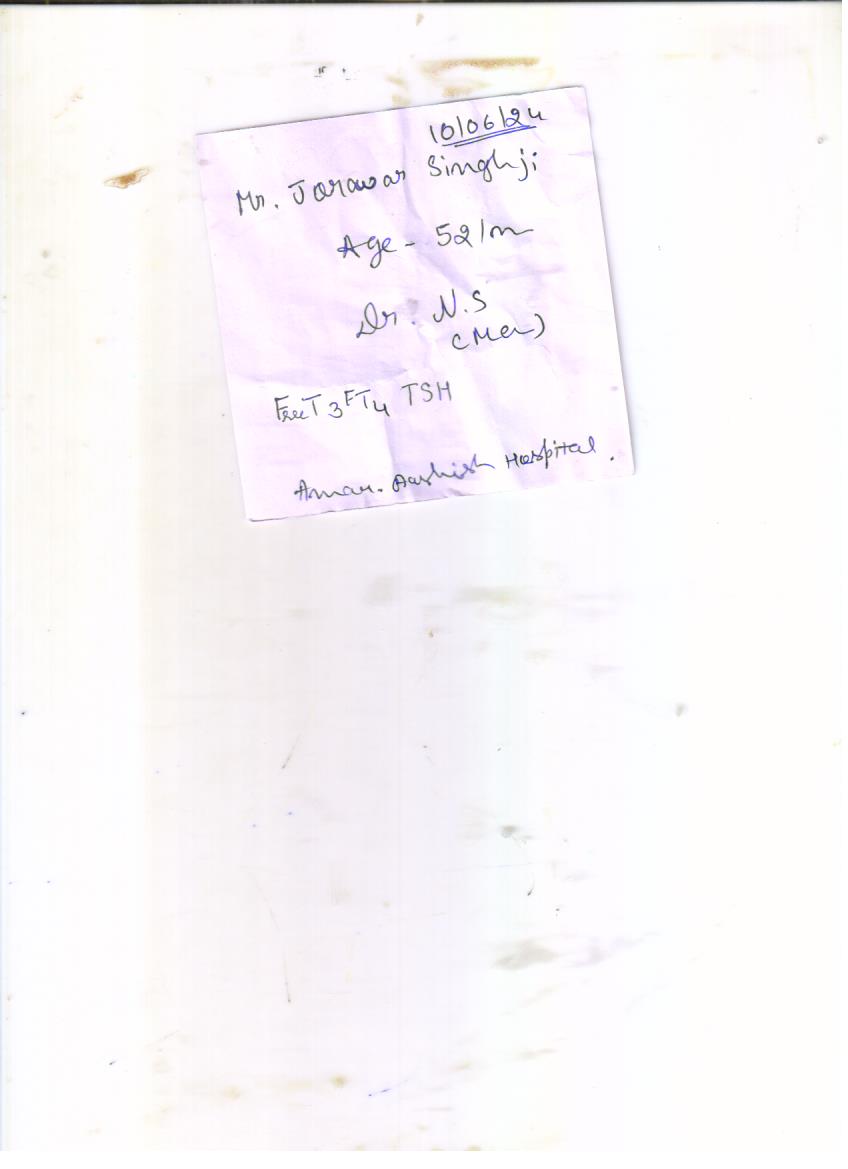 10/06/24
Mr. Jorawar Singhji
Age - 52/m
Dr. N.S
FreeT3 FT4 TSH
Amar. Aashish Hospital.